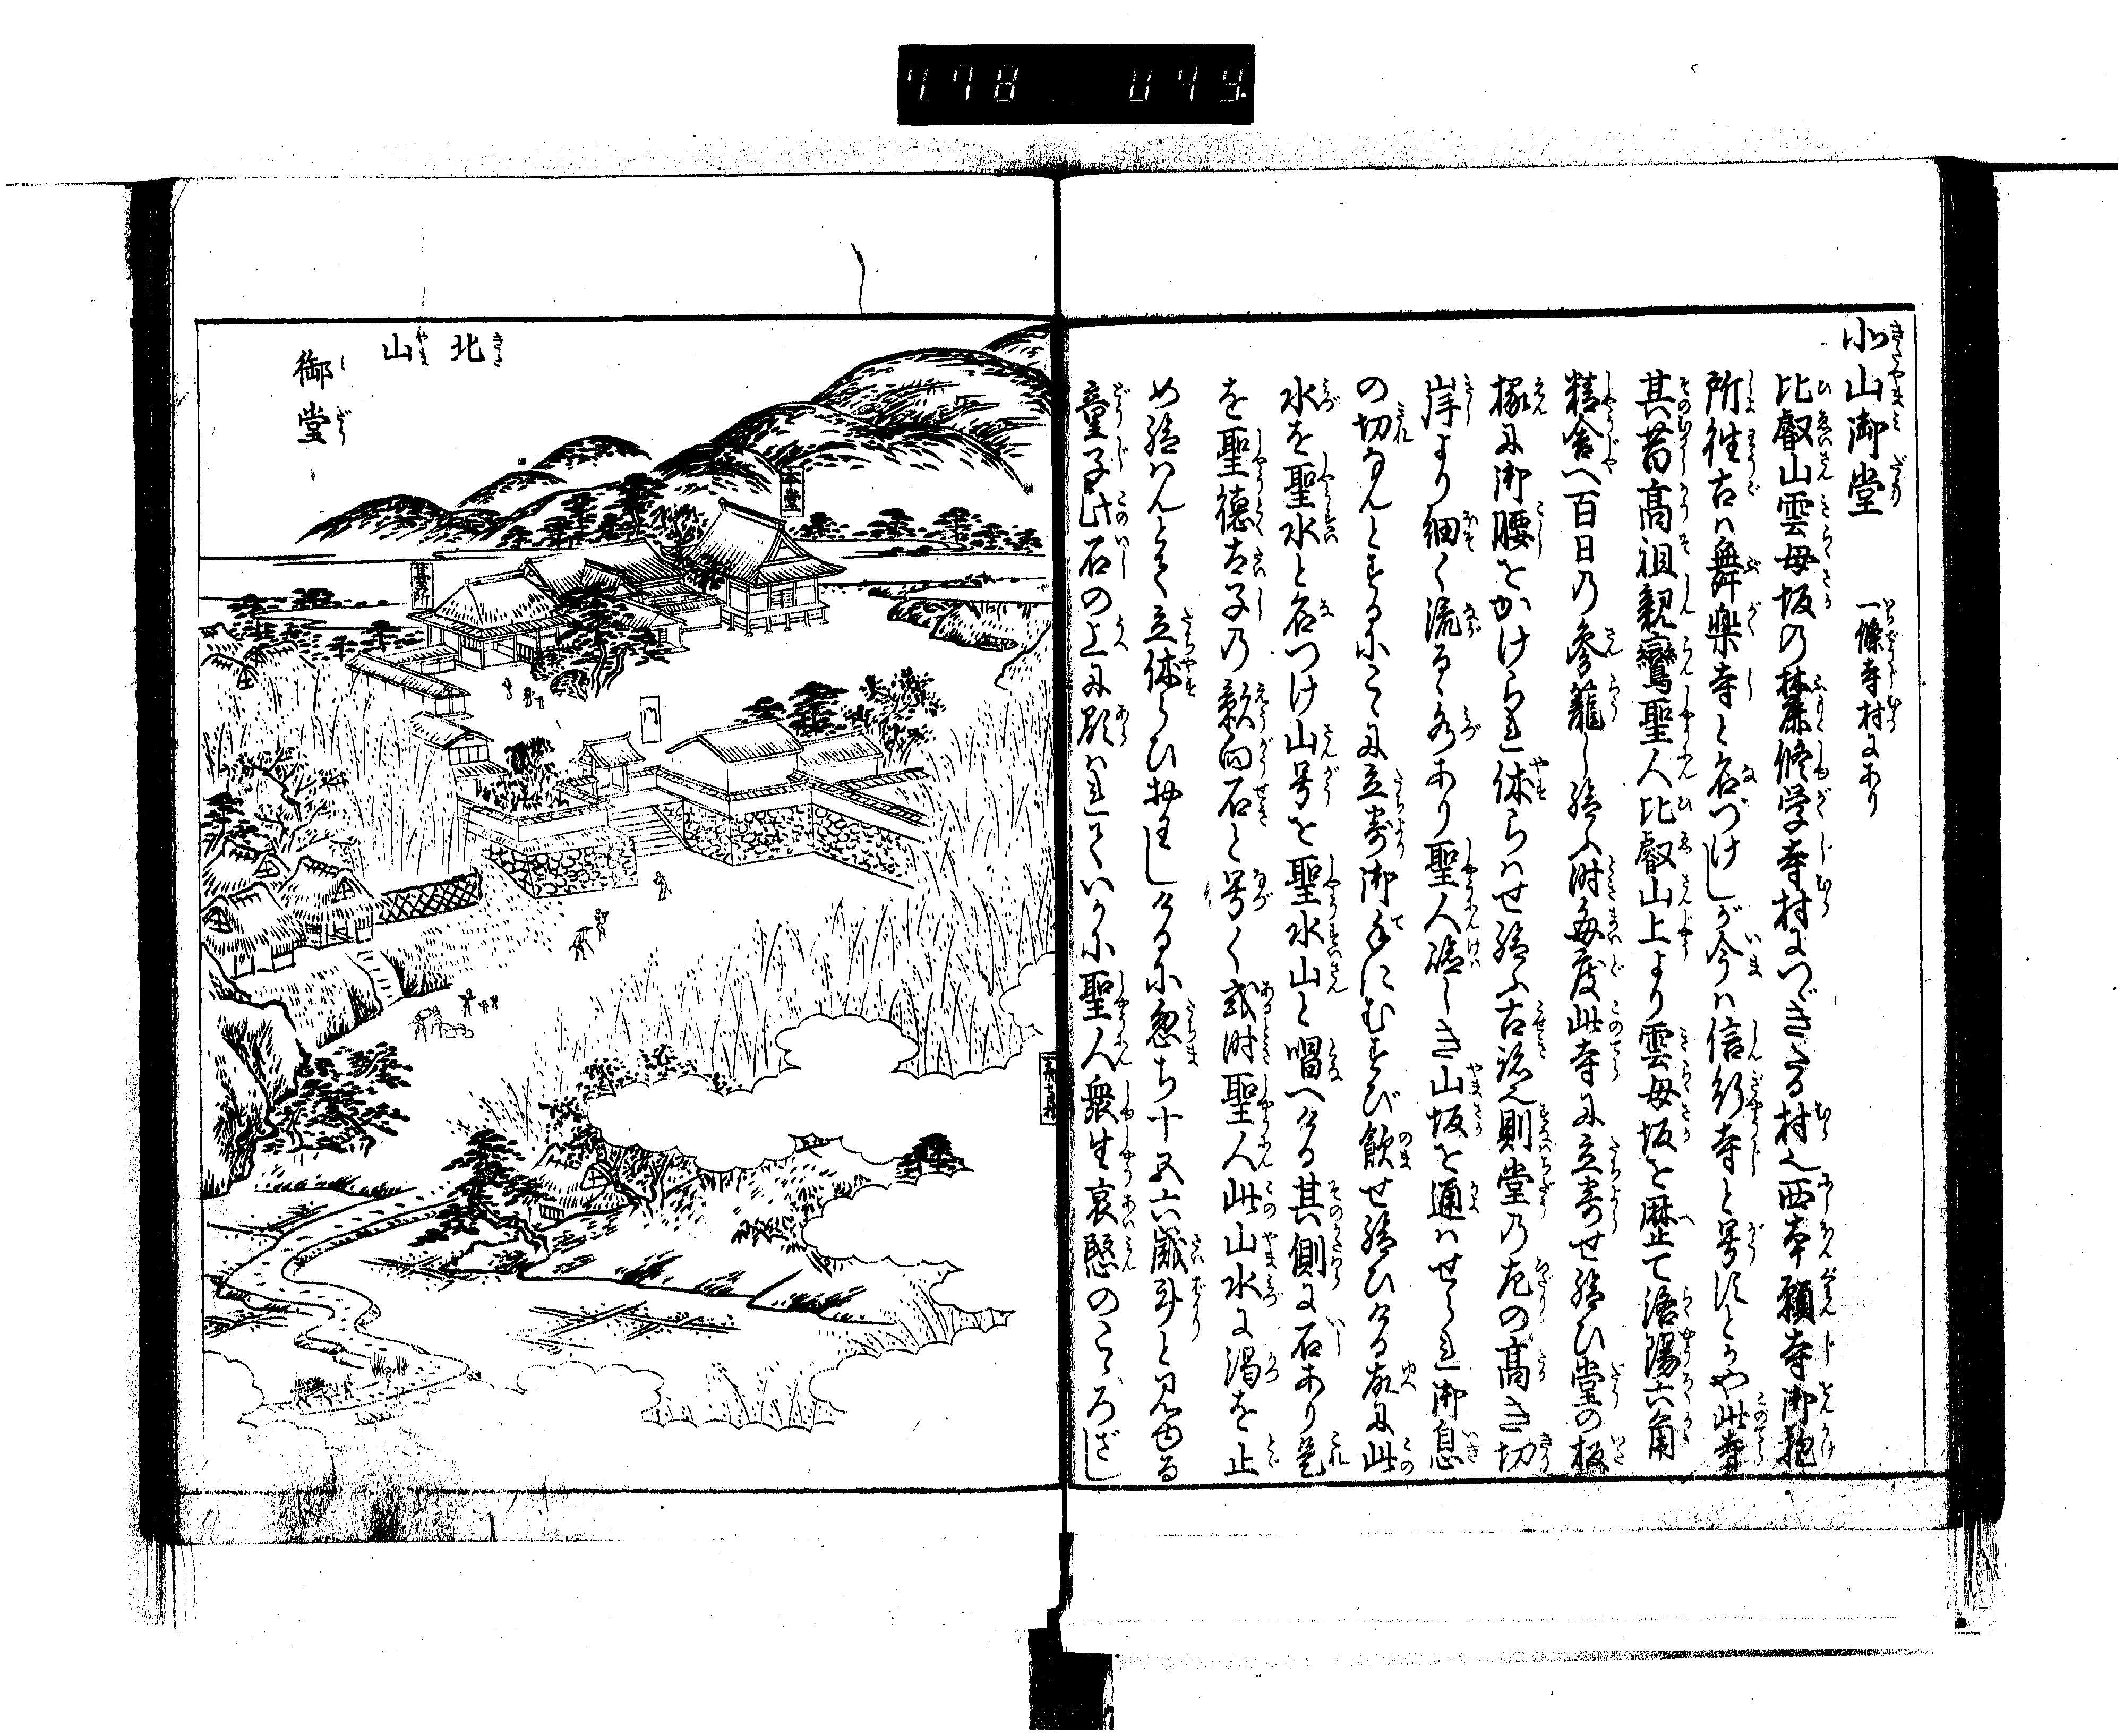 北山御堂 一條寺村にあり
比叡山雲母坂の林麓修学寺村につゞきたる村也西本願寺御抱
所往古ハ舞楽寺と名づけしが今ハ信行寺と号すとかや此寺
其昔高祖親鸞聖人比叡山上より雲母坂を歴て洛陽六角
精舎へ百日の参籠し給ふ時毎度此寺に立寄せ給ひ堂の板
椽に御腰をかけられ休らハせ給ふ古跡也則堂の左の高き切
岸より細く流るゝ水あり聖人嶮しき山坂を通ハせられ御息
の切なんとするにこゝに立寄御手にむすび飲せ給ひける故に此
水を聖水と名つけ山号を聖水山と唱へける其側に石あり是
を聖徳太子の影向石と号く或時聖人此山水に渇を止
め給ハんとて立休らひ在しけるに忽ち十五六歳斗と見ゆる
童子此石の上に顕ハれていかに聖人衆生哀愍のこゝろざし
北山
御堂
本堂
門